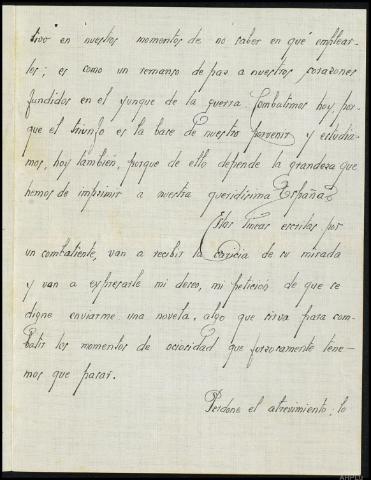 tivo en nuestros momentos de no saber en qué emplear-
los; es como un remanso de paz a nuestros corazones
fundidos en el yunque de la guerra. Combatimos hoy, por-
que el triunfo es la base de nuestro porvenir y estudia-
mos, hoy también, porque de ello depende la grandeza que
hemos de imprimir a nuestra queridísima España.
Estas líneas escritas por
un combatiente, van a recibir la caricia de su mirada
y van a expresarle mi deseo, mi petición de que se
digne enviarme una novela, algo que sirva para com-
batir los momentos de ociosidad que forzosamente tene-
mos que pasar.
Perdone el atrevimiento; lo
AHPLU